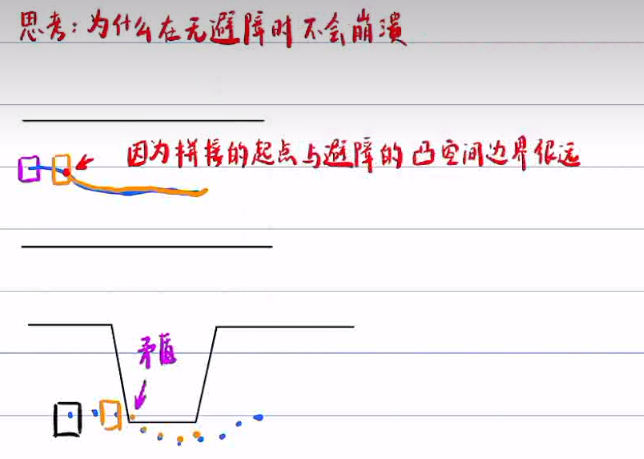 思考：为什么在无避障时不会崩溃
因为拼接的起点与避障的凸空间边界很远
矛盾